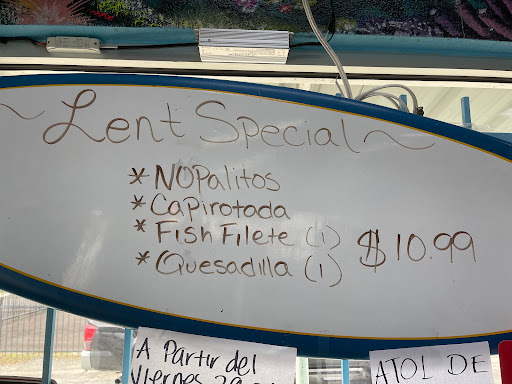 ~ Lent Special ~
* NOPalitos
* Capirotada
* Fish Filete (1)
* Quesadilla (1) $10.99
A Partir del
Viernes
ATOL DE